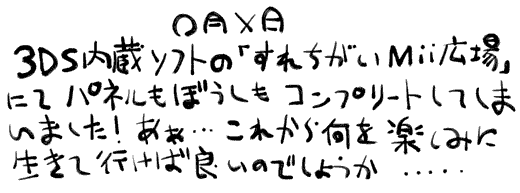 〇月×日
3DS内蔵ソフトの「すれちがいMii広場」
にて パネルもぼうしも コンプリートしてしま
いました! あぁ… これから何を 楽しみに
生きて行けば良いのでしょうか ・・・・・